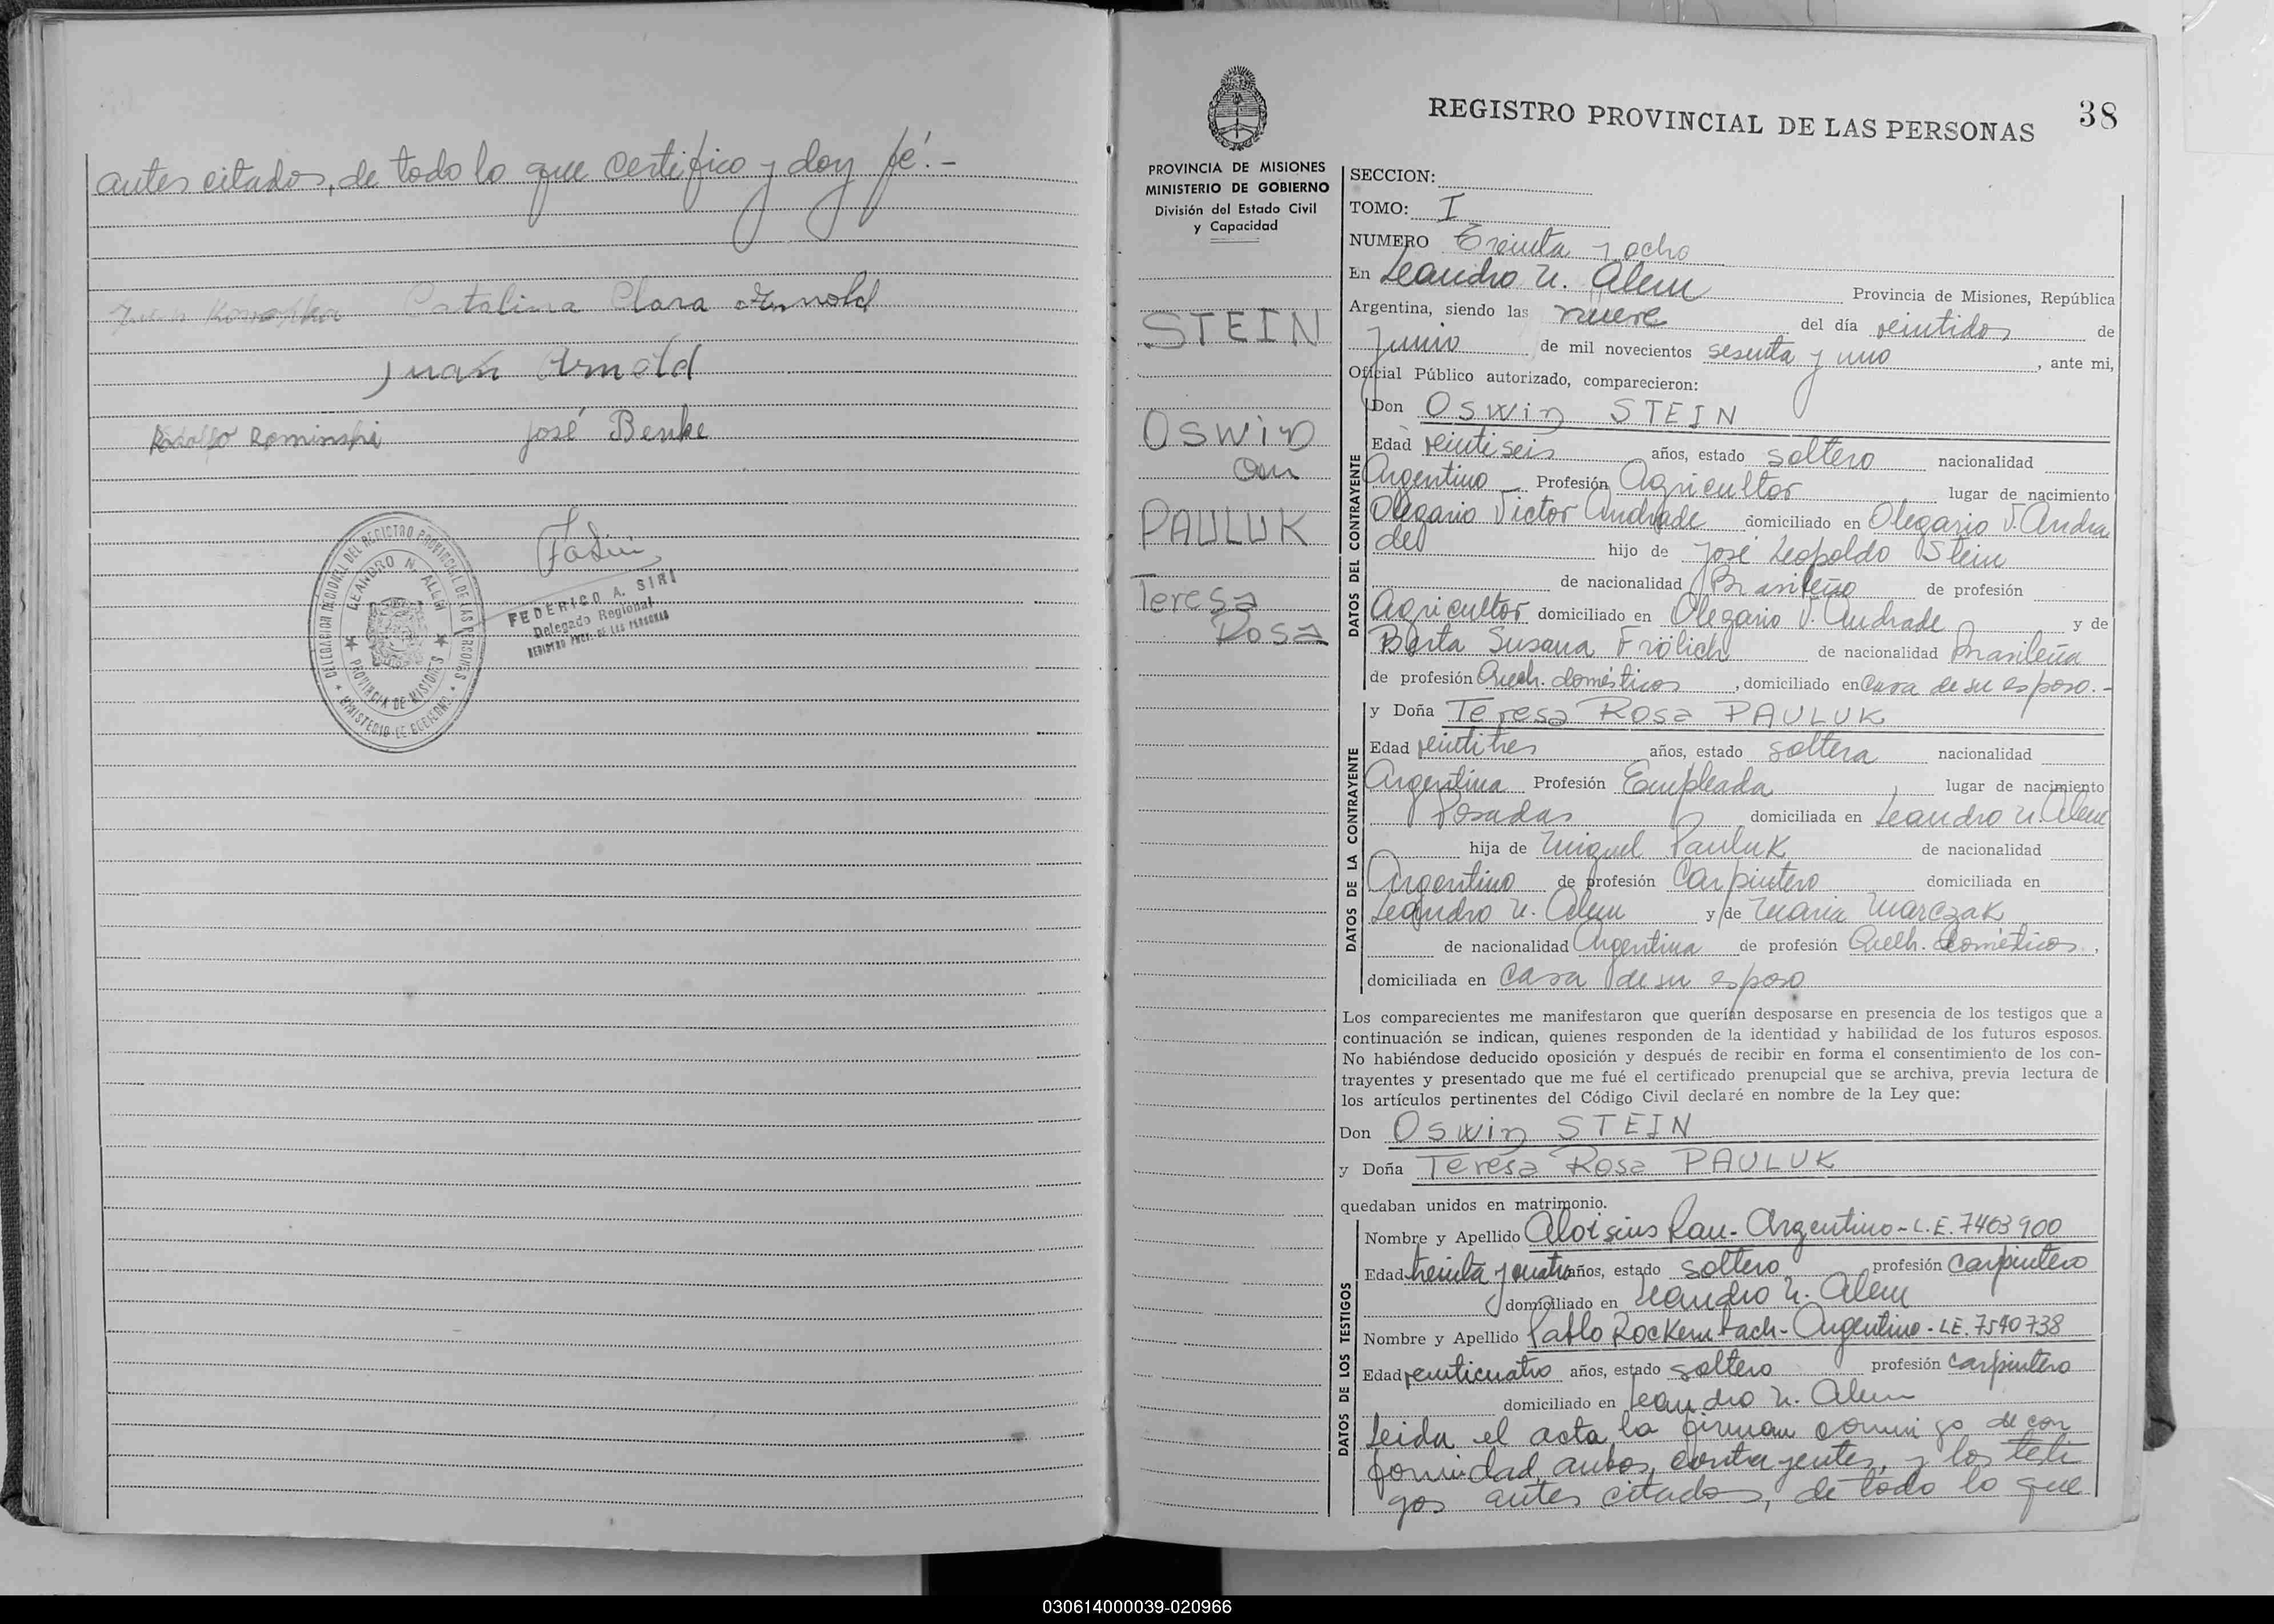 antes citados, de todo lo que certifico y doy fé.-
Juan Catalina Clara Arnold
Juan Arnold
Rodolfo Rominski José Benke
DELEGACION REGIONAL DEL REGISTRO PROVINCIAL DE LAS PERSONAS
LEANDRO N. ALEM
PROVINCIA DE MISIONES
MINISTERIO DE GOBIERNO
FEDERICO A. SIRI
Delegado Regional
REGISTRO PROV. DE LAS PERSONAS
38
REGISTRO PROVINCIAL DE LAS PERSONAS
PROVINCIA DE MISIONES
MINISTERIO DE GOBIERNO
División del Estado Civil
y Capacidad
STEIN
Oswin
con
PAULUK
Teresa
Rosa
SECCION:
TOMO: I
NUMERO Treinta y ocho
En Leandro N. Alem Provincia de Misiones, República
Argentina, siendo las nueve del día veintidos de
Junio de mil novecientos sesenta y uno, ante mi,
Oficial Público autorizado, comparecieron:
DATOS DEL CONTRAYENTE
Don Oswin STEIN
Edad veintiseis años, estado soltero nacionalidad
Argentino Profesión Agricultor lugar de nacimiento
Olegario Victor Andrade domiciliado en Olegario V. Andra
de hijo de José Leopoldo Stein
de nacionalidad Brasileño de profesión
Agricultor domiciliado en Olegario V. Andrade y de
Berta Susana Frölich de nacionalidad Brasileña
de profesión Queh. domésticos, domiciliado en Casa de su esposo.-
DATOS DE LA CONTRAYENTE
y Doña Teresa Rosa PAULUK
Edad veintitres años, estado soltera nacionalidad
Argentina Profesión Empleada lugar de nacimiento
Posadas domiciliada en Leandro N. Alem
hija de Miguel Pauluk de nacionalidad
Argentino de profesión Carpintero domiciliada en
Leandro N. Alem y de Maria Marczak
de nacionalidad Argentina de profesión Queh. Dométicos,
domiciliada en Casa de su esposo
Los comparecientes me manifestaron que querían desposarse en presencia de los testigos que a
continuación se indican, quienes responden de la identidad y habilidad de los futuros esposos.
No habiéndose deducido oposición y después de recibir en forma el consentimiento de los con-
trayentes y presentado que me fué el certificado prenupcial que se archiva, previa lectura de
los artículos pertinentes del Código Civil declaré en nombre de la Ley que:
Don Oswin STEIN
y Doña Teresa Rosa PAULUK
quedaban unidos en matrimonio.
DATOS DE LOS TESTIGOS
Nombre y Apellido Aloisius Rau- Argentino- L.E. 7463900
Edad treinta y cuatro años, estado soltero profesión Carpintero
domiciliado en Leandro N. Alem
Nombre y Apellido Pablo Rockembach- Argentino- LE. 7540738
Edad veinticuatro años, estado soltero profesión Carpintero
domiciliado en Leandro N. Alem
Leida el acta la firman conmigo de con
formidad ambos contrayentes, y los testi
gos antes citados, de todo lo que
030614000039-020966